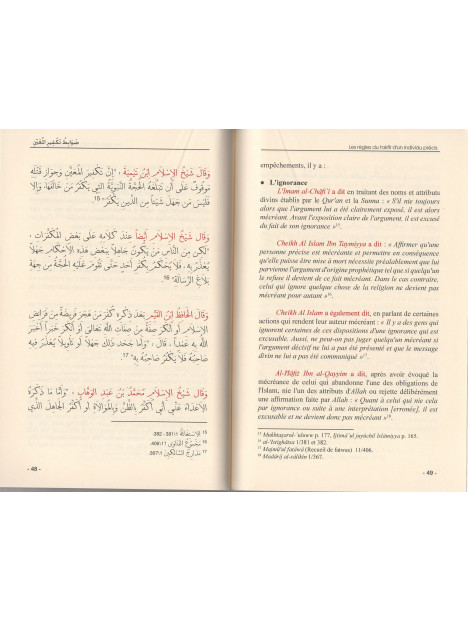 ضَوَابِطُ تَكْفِيرِ المُعَيَّن
وَقَالَ شَيْخُ الإِسْلَامِ ابْنُ تَيْمِيَةَ : "إِنَّ تَكْفِيرَ الْمُعَيَّنِ وَجَوَازَ قَتْلِهِ
مَوْقُوفٌ عَلَى أَنْ تَبْلُغَهُ الْحُجَّةُ النَّبَوِيَّةُ الَّتِي يَكْفُرُ مَنْ خَالَفَهَا،
فَلَيْسَ مَنْ جَهِلَ شَيْئاً مِنَ الدِّينِ يَكْفُرُ" 15
وَقَالَ شَيْخُ الإِسْلَامِ أَيْضاً عِنْدَ كَلَامِهِ عَلَى بَعْضِ الْمُكَفِّرَاتِ،
"لَكِنْ مِنَ النَّاسِ مَنْ يَكُونُ جَاهِلاً بِبَعْضِ هَذِهِ الأَحْكَامِ جَهْلاً
يُعْذَرُ بِهِ، فَلاَ يُحْكَمُ بِكُفْرِ أَحَدٍ حَتَّى تَقُومَ عَلَيْهِ الْحُجَّةُ مِنْ جِهَةِ
بَلاَغِ الرِّسَالَةِ" 16
وَقَالَ الْحَافِظُ ابْنُ الْقَيِّمِ بَعْدَ ذِكْرِهِ كُفْرَ مَنْ هَجَرَ فَرِيضَةً مِنْ فَرَائِضِ
الإِسْلَامِ أَوْ أَنْكَرَ صِفَةً مِنْ صِفَاتِ اللهِ تَعَالَى أَوْ أَنْكَرَ خَبَراً أَخْبَرَ
اللهُ بِهِ عَمْداً ، قَالَ : "وَأَمَّا جَهْلاً أَوْ تَأْوِيلاً يُعْذَرُ فِيهِ
صَاحِبُهُ فَلاَ يُكَفَّرُ صَاحِبُهُ بِهِ" 17
وَقَالَ شَيْخُ الإِسْلَامِ مُحَمَّدُ بْنُ عَبْدِ الْوَهَّابِ : "وَأَمَّا مَا ذَكَرَهُ
الأَعْدَاءُ عَنِّي أَنِّي أُكَفِّرُ بِالظَّنِّ وَبِالْمُوَالاَةِ أَوْ أُكَفِّرُ الْجَاهِلَ الَّذِي
15 الإِسْتِغَاثَةُ 1/381- 382.
16 مَجْمُوعُ الفَتَاوَى 11/406.
17 مَدَارِجُ السَّالِكِينَ 1/367.
- 48 -
Les règles du takfîr d'un individu précis
empêchements, il y a :
• L'ignorance
L'Imam al-Châfi'î a dit en traitant des noms et attributs
divins établis par le Qur'an et la Sunna : « S'il nie toujours
alors que l'argument lui a été clairement exposé, il est alors
mécréant. Avant l'exposition claire de l'argument, il est excusé
du fait de son ignorance »15.
Cheikh Al Islam Ibn Taymiyya a dit : « Affirmer qu'une
personne précise est mécréante et permettre en conséquence
qu'elle puisse être mise à mort nécessite préalablement que lui
parvienne l'argument d'origine prophétique tel que si quelqu'un
le refuse il devient de ce fait mécréant. Dans le cas contraire,
celui qui ignore quelque chose de la religion ne devient pas
mécréant pour autant »16.
Cheikh Al Islam a également dit, en parlant de certaines
actions qui rendent leur auteur mécréant : « Il y a des gens qui
ignorent certaines de ces dispositions d'une ignorance qui est
excusable. Aussi, ne peut-on pas juger quelqu'un mécréant si
l'argument décisif ne lui a pas été présenté et que le message
divin ne lui a pas été communiqué »17.
Al-Hâfiz Ibn al-Qayyim a dit, après avoir évoqué la
mécréance de celui qui abandonne l'une des obligations de
l'Islam, nie l'un des attributs d'Allah ou rejette délibérément
une affirmation faite par Allah : « Quant à celui qui nie cela
par ignorance ou suite à une interprétation [erronée], il est
excusable et ne devient donc pas mécréant »18.
15 Mukhtaçarul-'uluww p. 177, Ijtimâ'al juyûchil Islâmiyya p. 165.
16 al-'Istighâtsa 1/381 et 382.
17 Majmû'ul fatâwâ (Recueil de fatwas) 11/406.
18 Madârij al-sâlikîn 1/367.
- 49 -